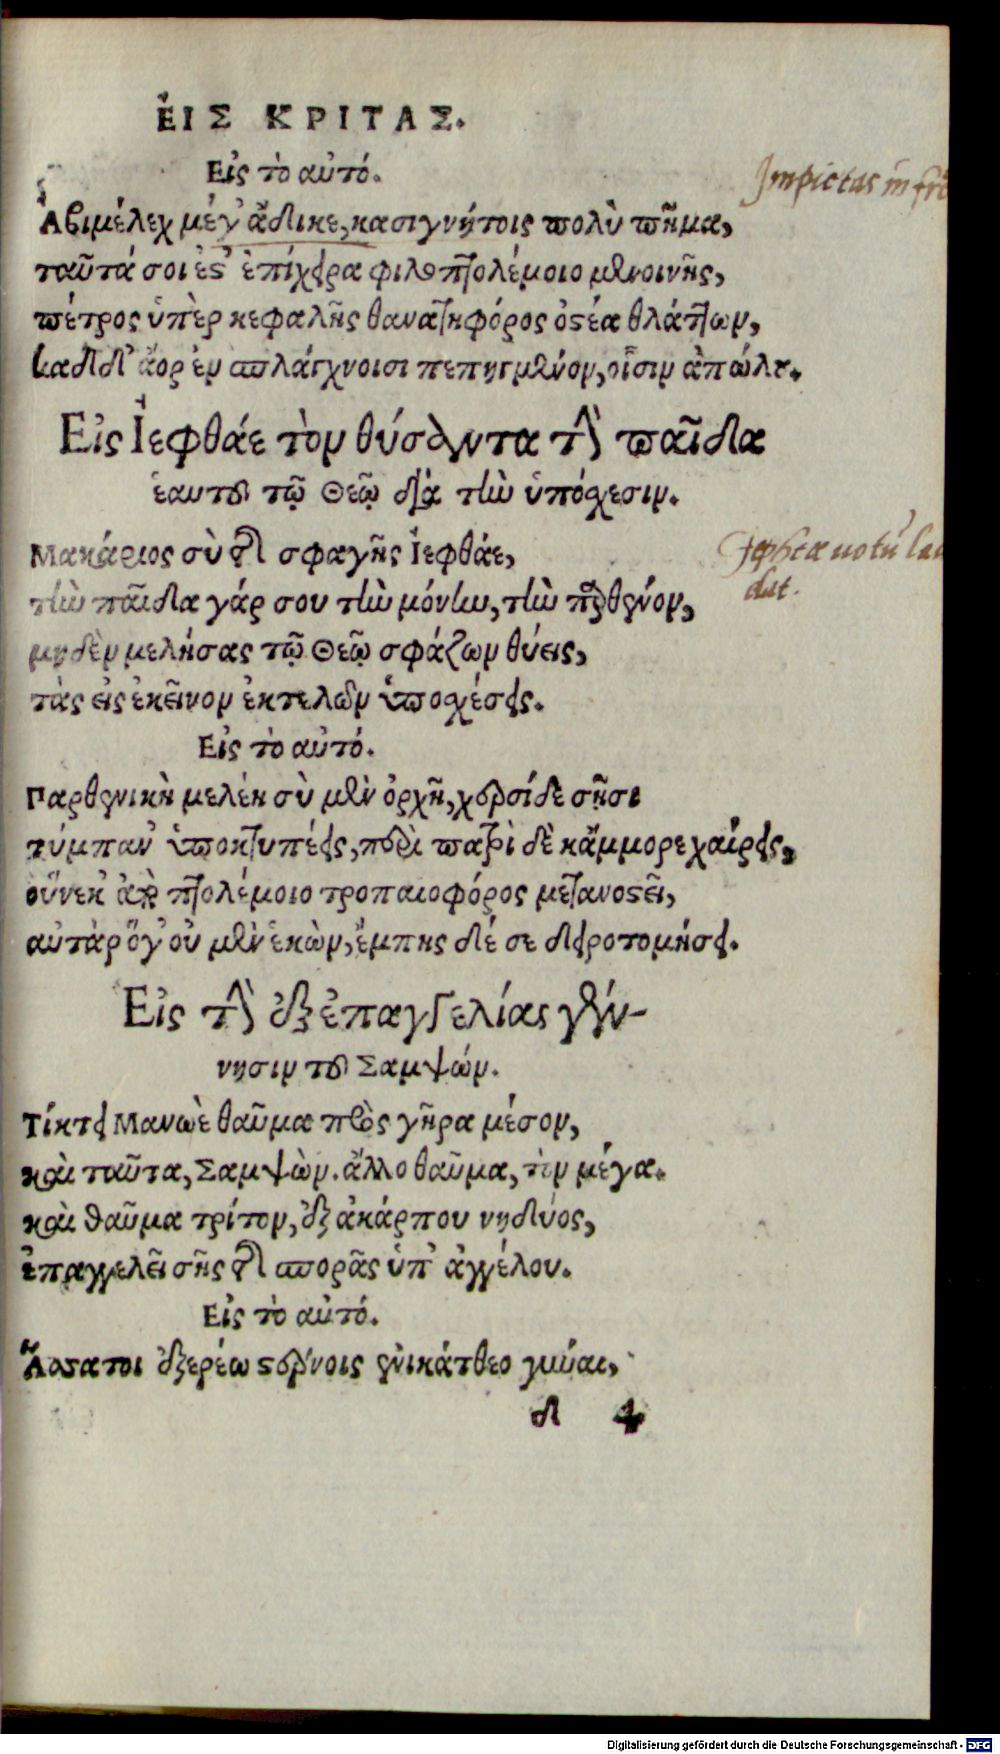 ἘΙΣ ΚΡΙΤΑΣ.
Εἰς τὸ αὐτό.
Impietas in
Ἀβιμέλεχ μέγ' ἄδικε, κασιγνήτοις πολὺ πῆμα,
ταῦτά σοι ἐς' ἐπίχειρα φιλοπτολέμοιο μενοινῆς,
πέτρος ὑπὲρ κεφαλῆς θανατηφόρος ὀστέα θλάττων,
καδδ' ἄορ ἐν σπλάγχνοισι πεπηγμένον, οἷσιν ἀπώλου.
Εἰς Ἰεφθάε τὸν θύσαντα τὴν παῖδα
ἑαυτοῦ τῷ Θεῷ διὰ τὴν ὑπόσχεσιν.
Μακάριος σὺ τῆς σφαγῆς Ἰεφθάε,
Jephtæ uotū
dat.
τὴν παῖδα γάρ σου τὴν μόνην, τὴν παρθένον,
μηδὲν μελήσας τῷ Θεῷ σφάζων θύεις,
τὰς εἰς ἐκεῖνον ἐκτελῶν ὑποσχέσεις.
Εἰς τὸ αὐτό.
Παρθενικὴ μελέη σὺ μὲν ὀρχῇ, χερσί δε σῇσι
τύμπαν' ὑποκτυπέεις, περὶ πατρὶ δὲ κάμμορε χαίρεις,
οὕνεκ' ἀπὸ πτολέμοιο τροπαιοφόρος μετανοστεῖ,
αὐτὰρ ὅγ' οὐ μὲν ἑκὼν, ἔμπης δέ σε δειροτομήσει.
Εἰς τὴν ἐξ ἐπαγγελίας γέν-
νησιν τοῦ Σαμψών.
Τίκτει Μανωὲ θαῦμα πρὸς γῆρα μέσον,
καὶ ταῦτα, Σαμψὼν. ἄλλο θαῦμα, τὸν μέγα.
καὶ θαῦμα τρίτον, ἐξ ἀκάρπου νηδύος,
ἐπαγγελείσης τῆς σπορᾶς ὑπ' ἀγγέλου.
Εἰς τὸ αὐτό.
Ἄσσα τοι ἐξερέω στέρνοις ἐνικάτθεο γύναι,
δ 4
Digitalisierung gefördert durch die Deutsche Forschungsgemeinschaft - DFG